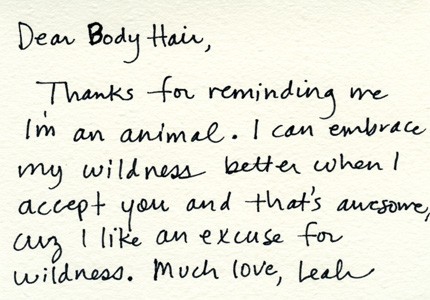 Dear Body Hair,
Thanks for reminding me
I'm an animal. I can embrace
my wildness better when I
accept you and that's awesome,
cuz I like an excuse for
wildness. Much love, Leah